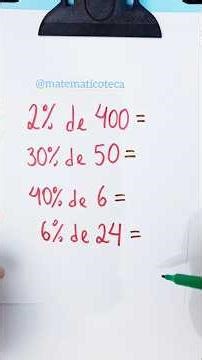 @matematicoteca
2% de 400 =
30% de 50 =
40% de 6 =
6% de 24 =